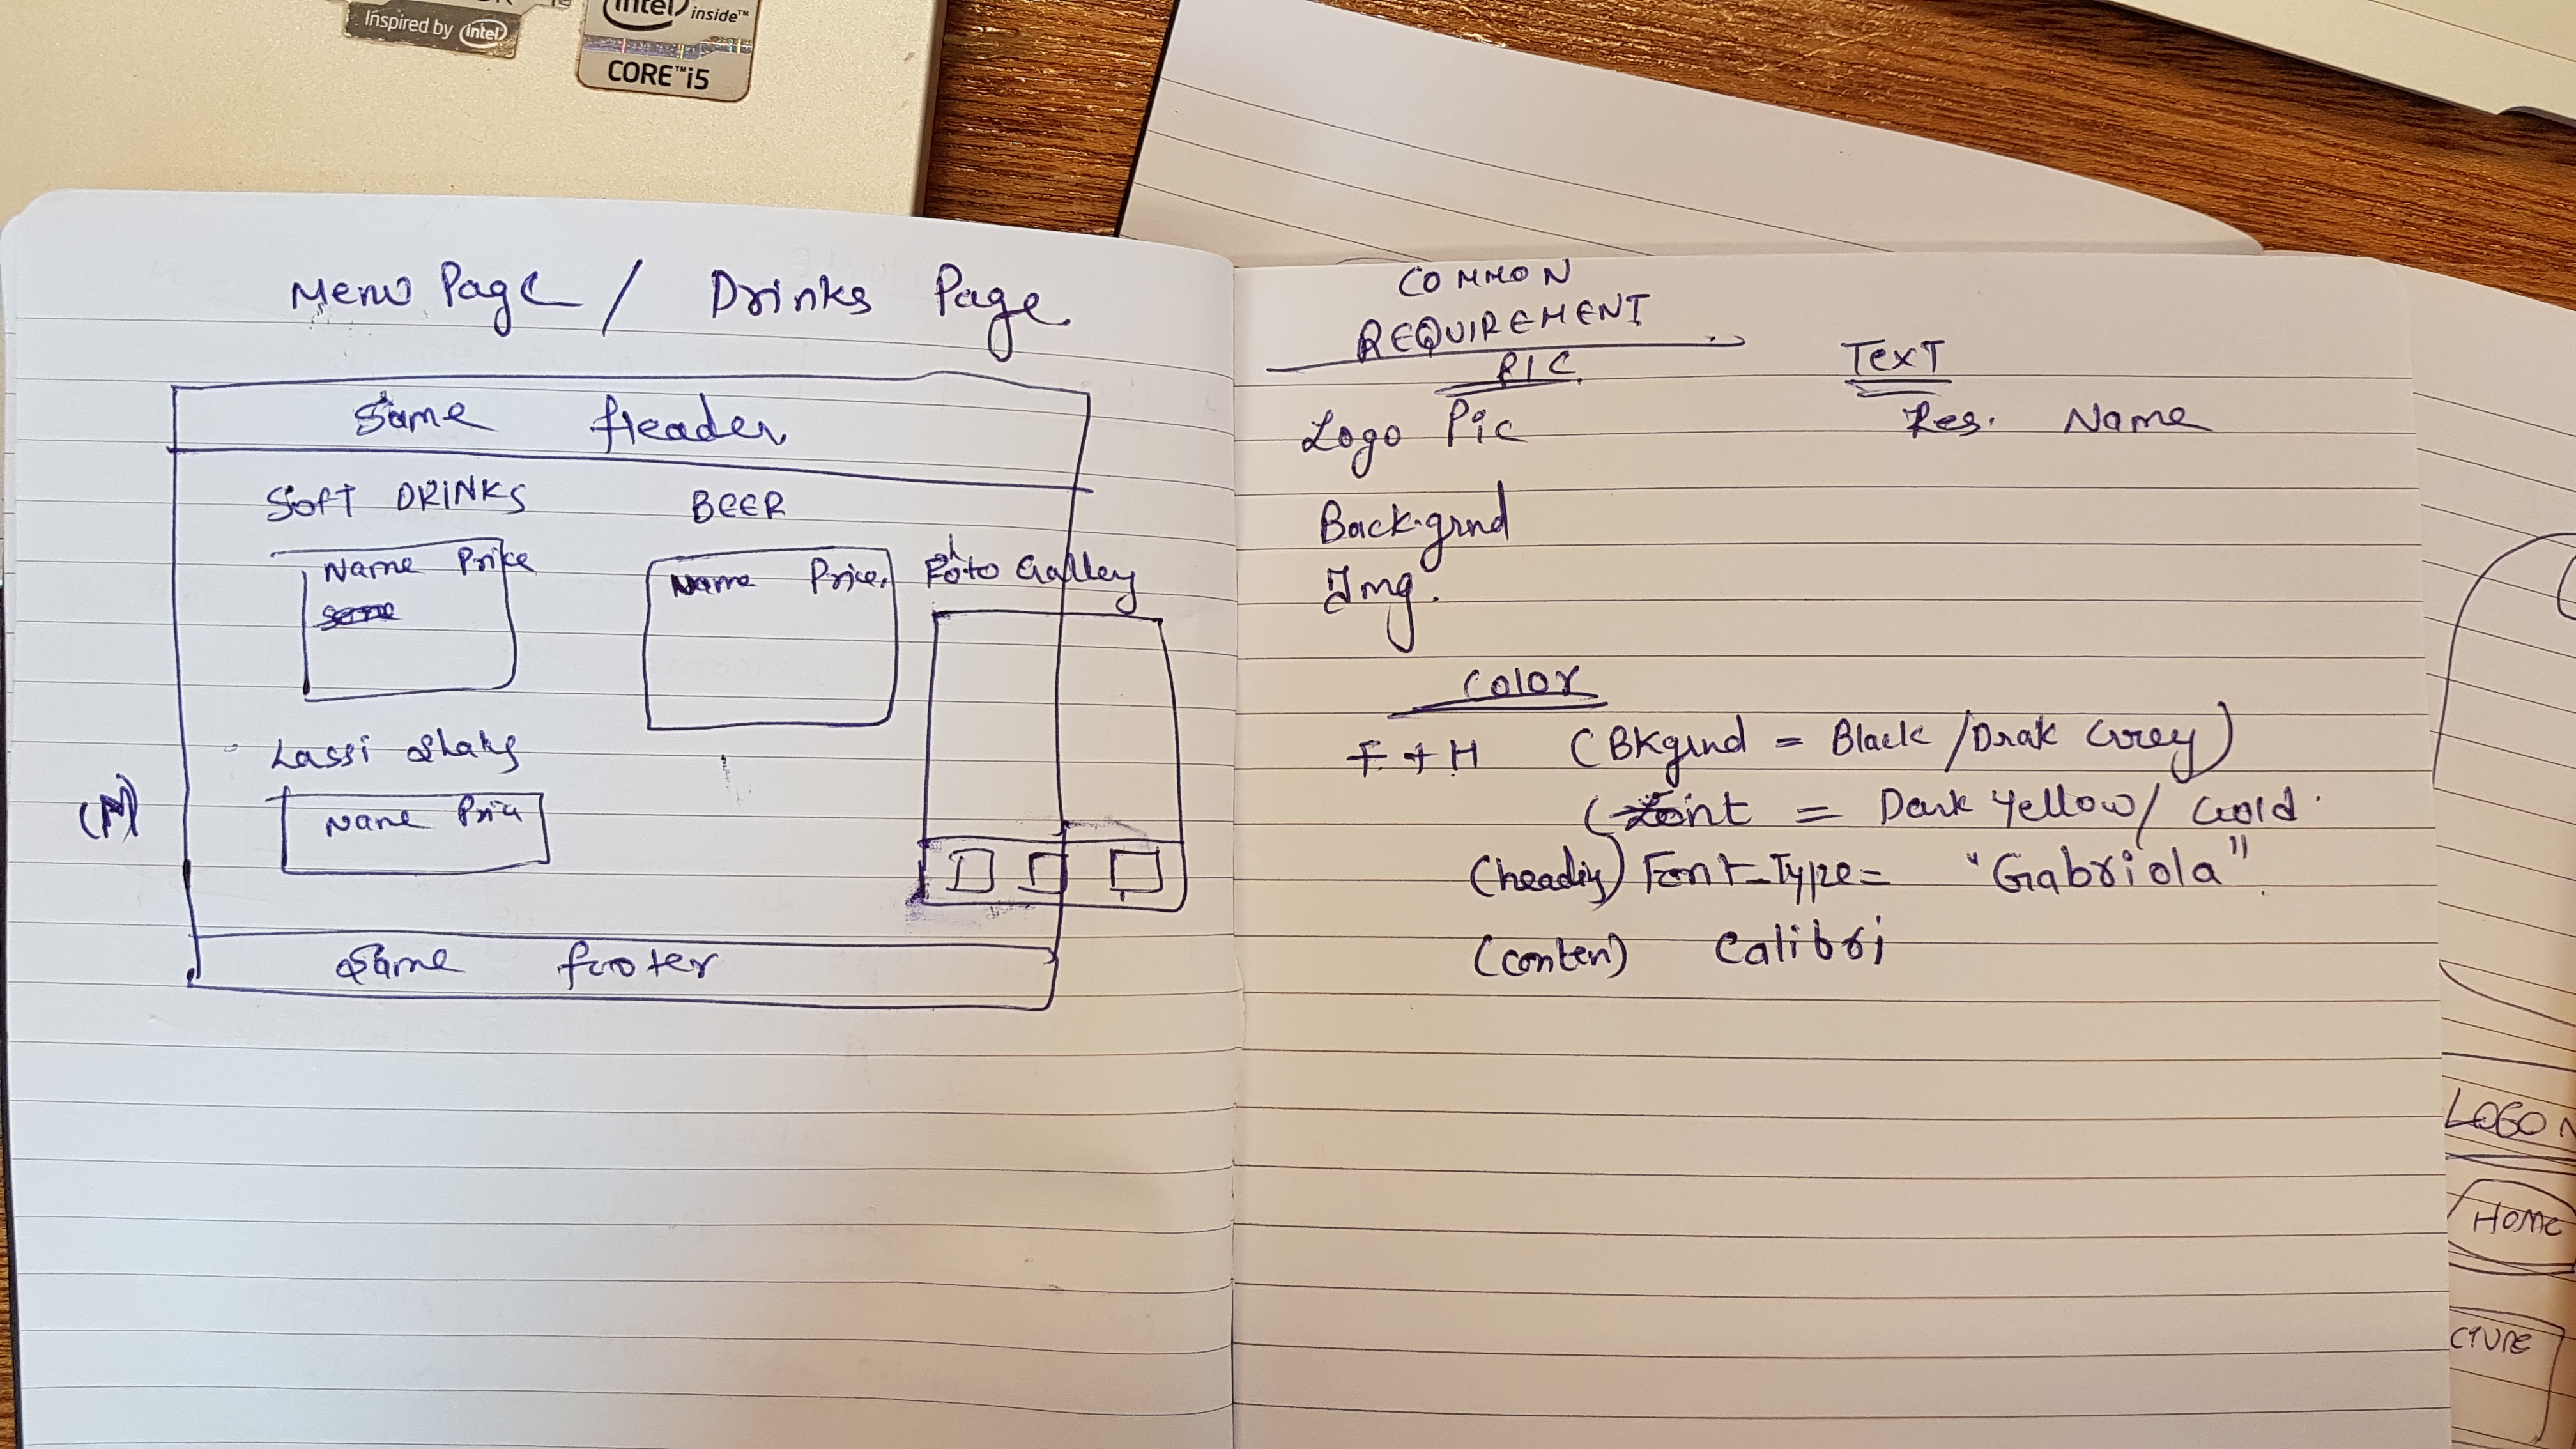 Inspired by intel
intel inside™
CORE™ i5
Menu Page / Drinks Page
Same Header
SOFT DRINKS BEER
Name Price
Name Price.
Photo Galley
Lassi Shaks
Name Pric
Same footer
COMMON
REQUIREMENT
PIC
TEXT
Logo Pic
Res. Name
Back-grnd
Img.
Color
F + H (BKgrnd = Black / Drak Grey)
= Dark Yellow / Gold
(headig) Font-Type = "Gabriola"
(conten) Calibri
LOGO
HOME
CTURE